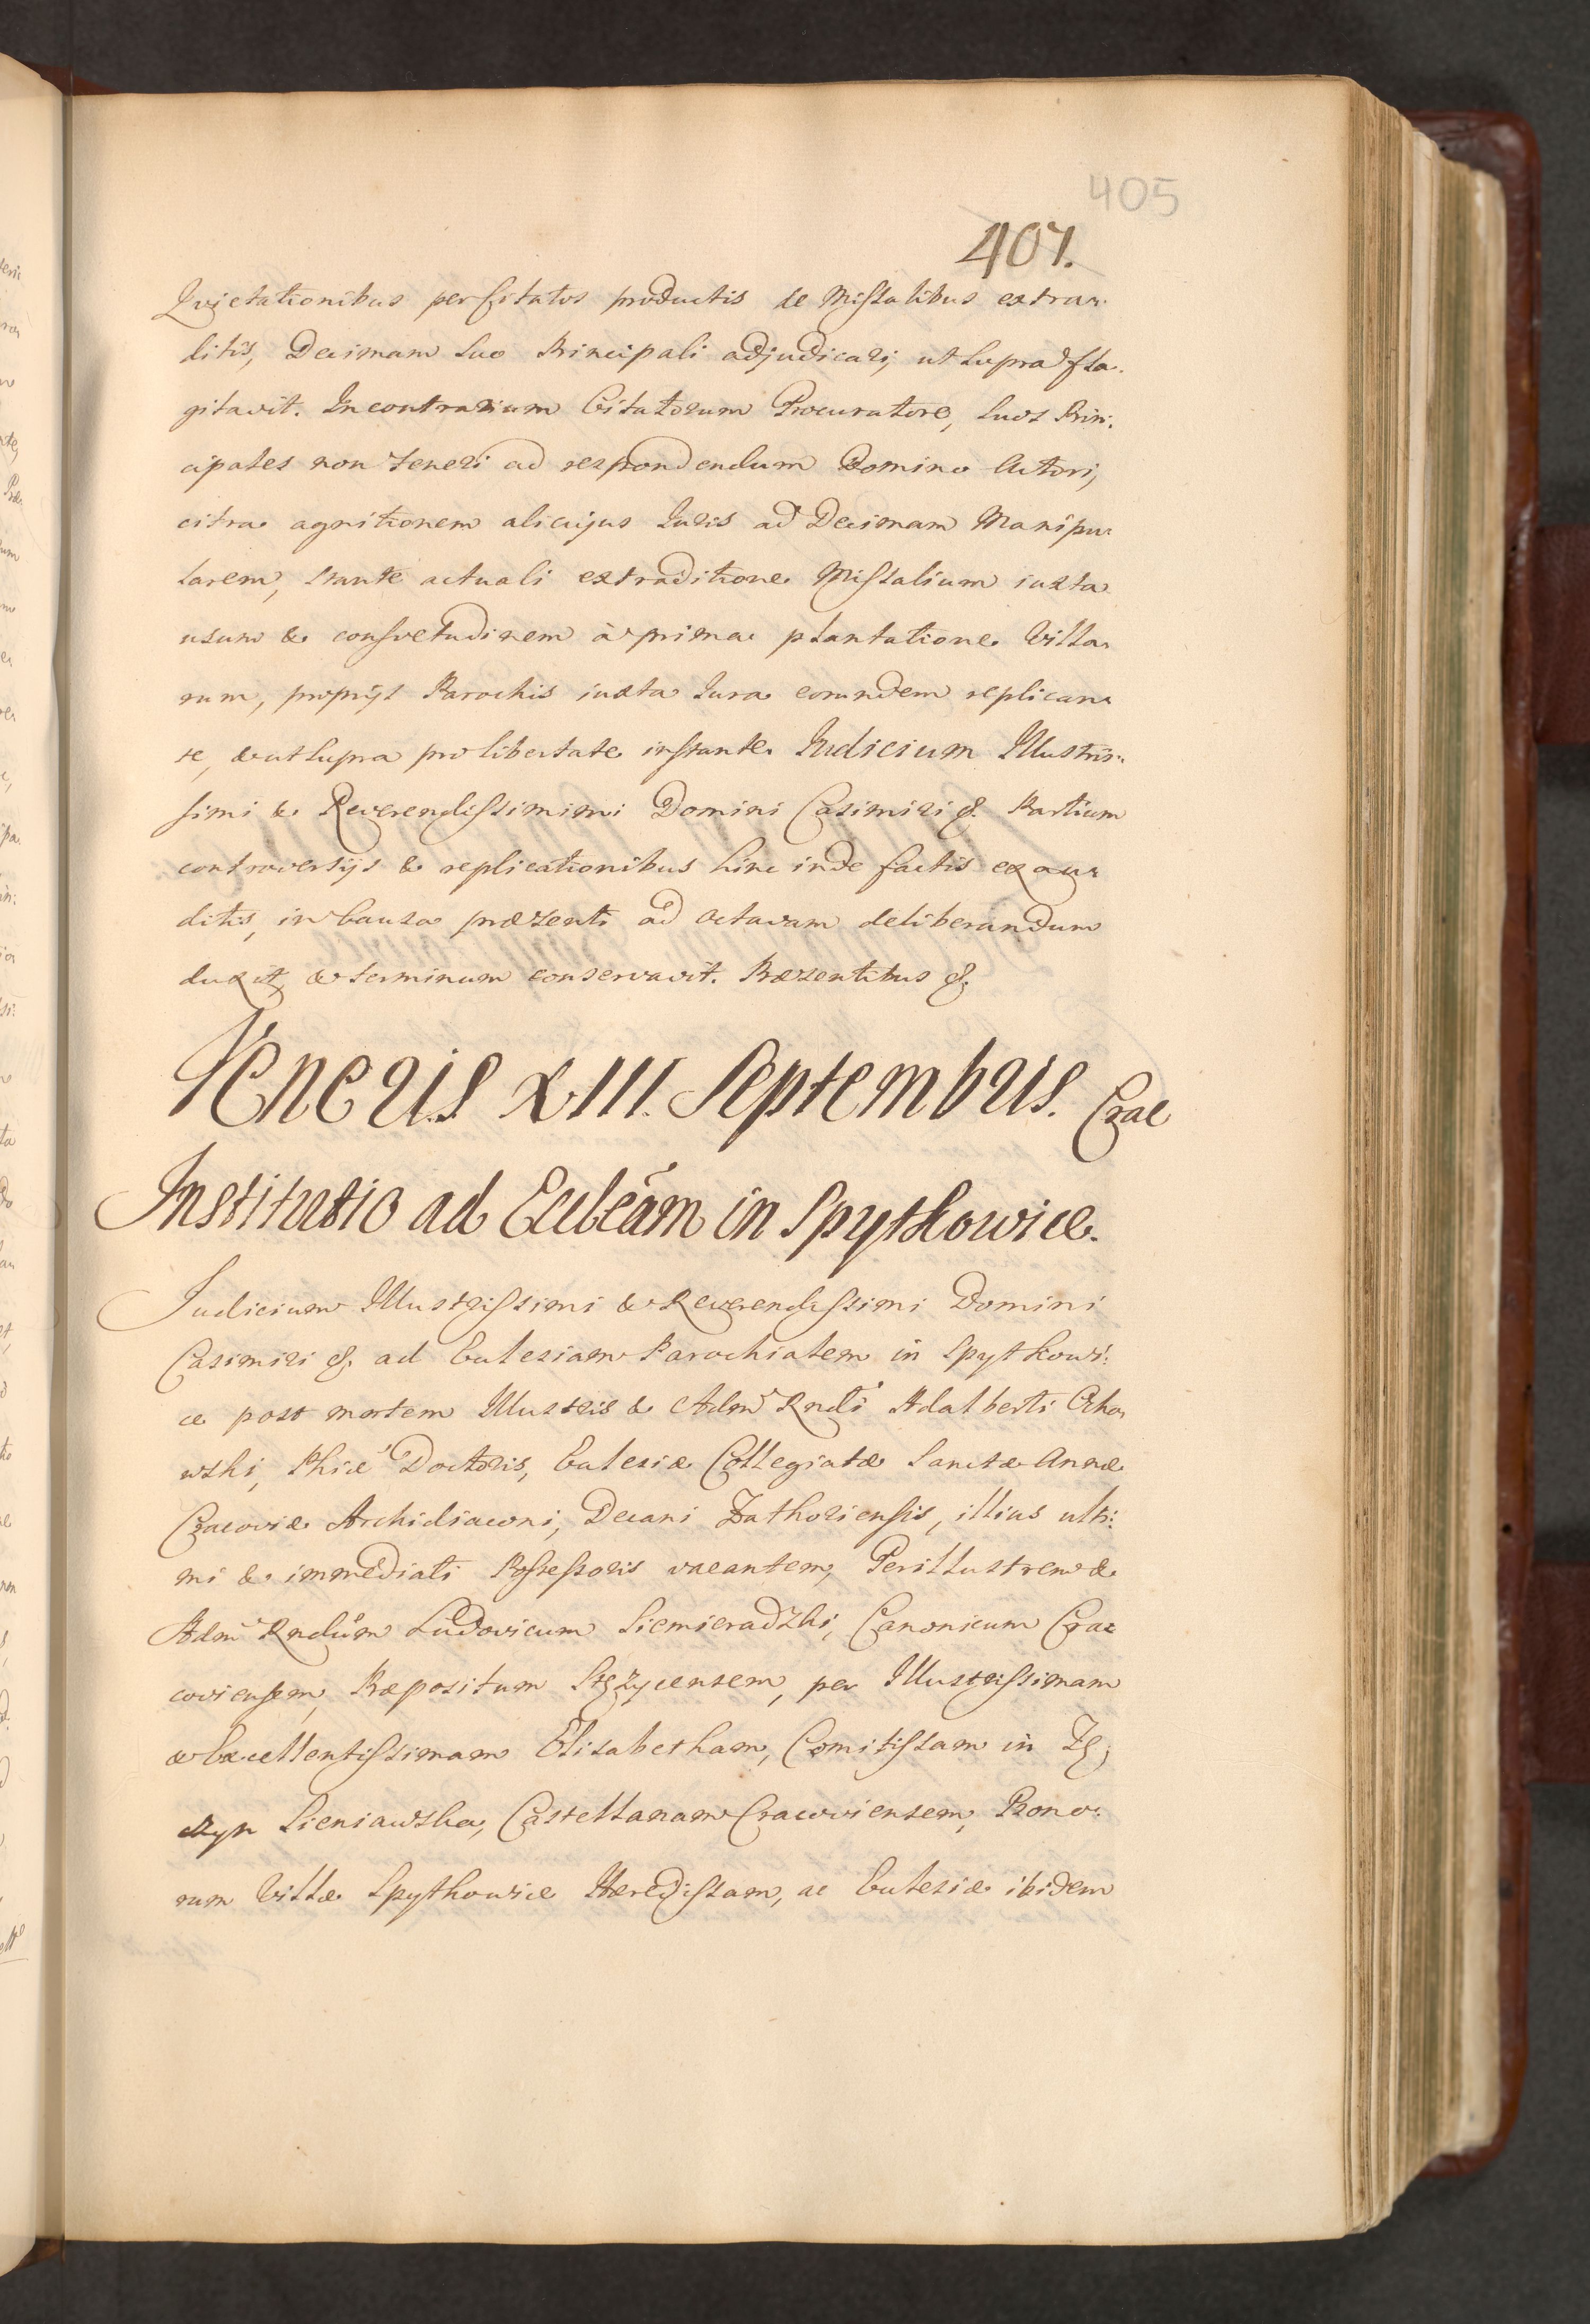 405
407.
Qvietationibus per Citatos productis de Missalibus extra-
ditis, Decimam suo Principali adjudicari, ut supra fla-
gitavit. In contrarium Citatorum Procuratore, suos Prin-
cipales non teneri ad respondendum Domino Actori,
citra agnitionem alicujus Juris ad Decimam Manipu-
larem, stante actuali extraditione Missalium iuxta
usum & consvetudinem à prima plantatione Villa-
rum, proprijs Parochis iuxta Jura eorundem replican-
te, & ut supra pro libertate instante. Judicium Illustris-
simi & Reverendissimimi Domini Casimiri &. Partium
controversijs & replicationibus hinc inde factis exau-
ditis, in Causa præsenti ad Octavam deliberandum
duxit, & terminum conservavit. Præsentibus &.
Veneris XIII. Septembris. Crac
Institutio ad Ecclēam in Spytkowice.
Judicium Illustrissimi & Reverendissimi Domini
Casimiri &. ad Ecclesiam Parochialem in Spytkowi-
ce post mortem Illustris & Adm Rndi Adalberti
wski, Phiæ Doctoris, Ecclesiæ Collegiatæ Sanctæ Annæ
Cracoviæ Archidiaconi, Decani Zathoriensis, illius ulti-
mi & immediati Possessoris vacantem, Perillustrem &
Adm Rndum Ludovicum Siemieradzki, Canonicum Cra-
coviensem, Præpositum Stężycensem, per Illustrissimam
& Excellentissimam Elisabetham, Comitissam in Tę-
czyn Sieniawska, Castellanam Cracoviensem, Bono-
rum Villæ Spythowice Hæredissam, ac Ecclesiæ ibidem